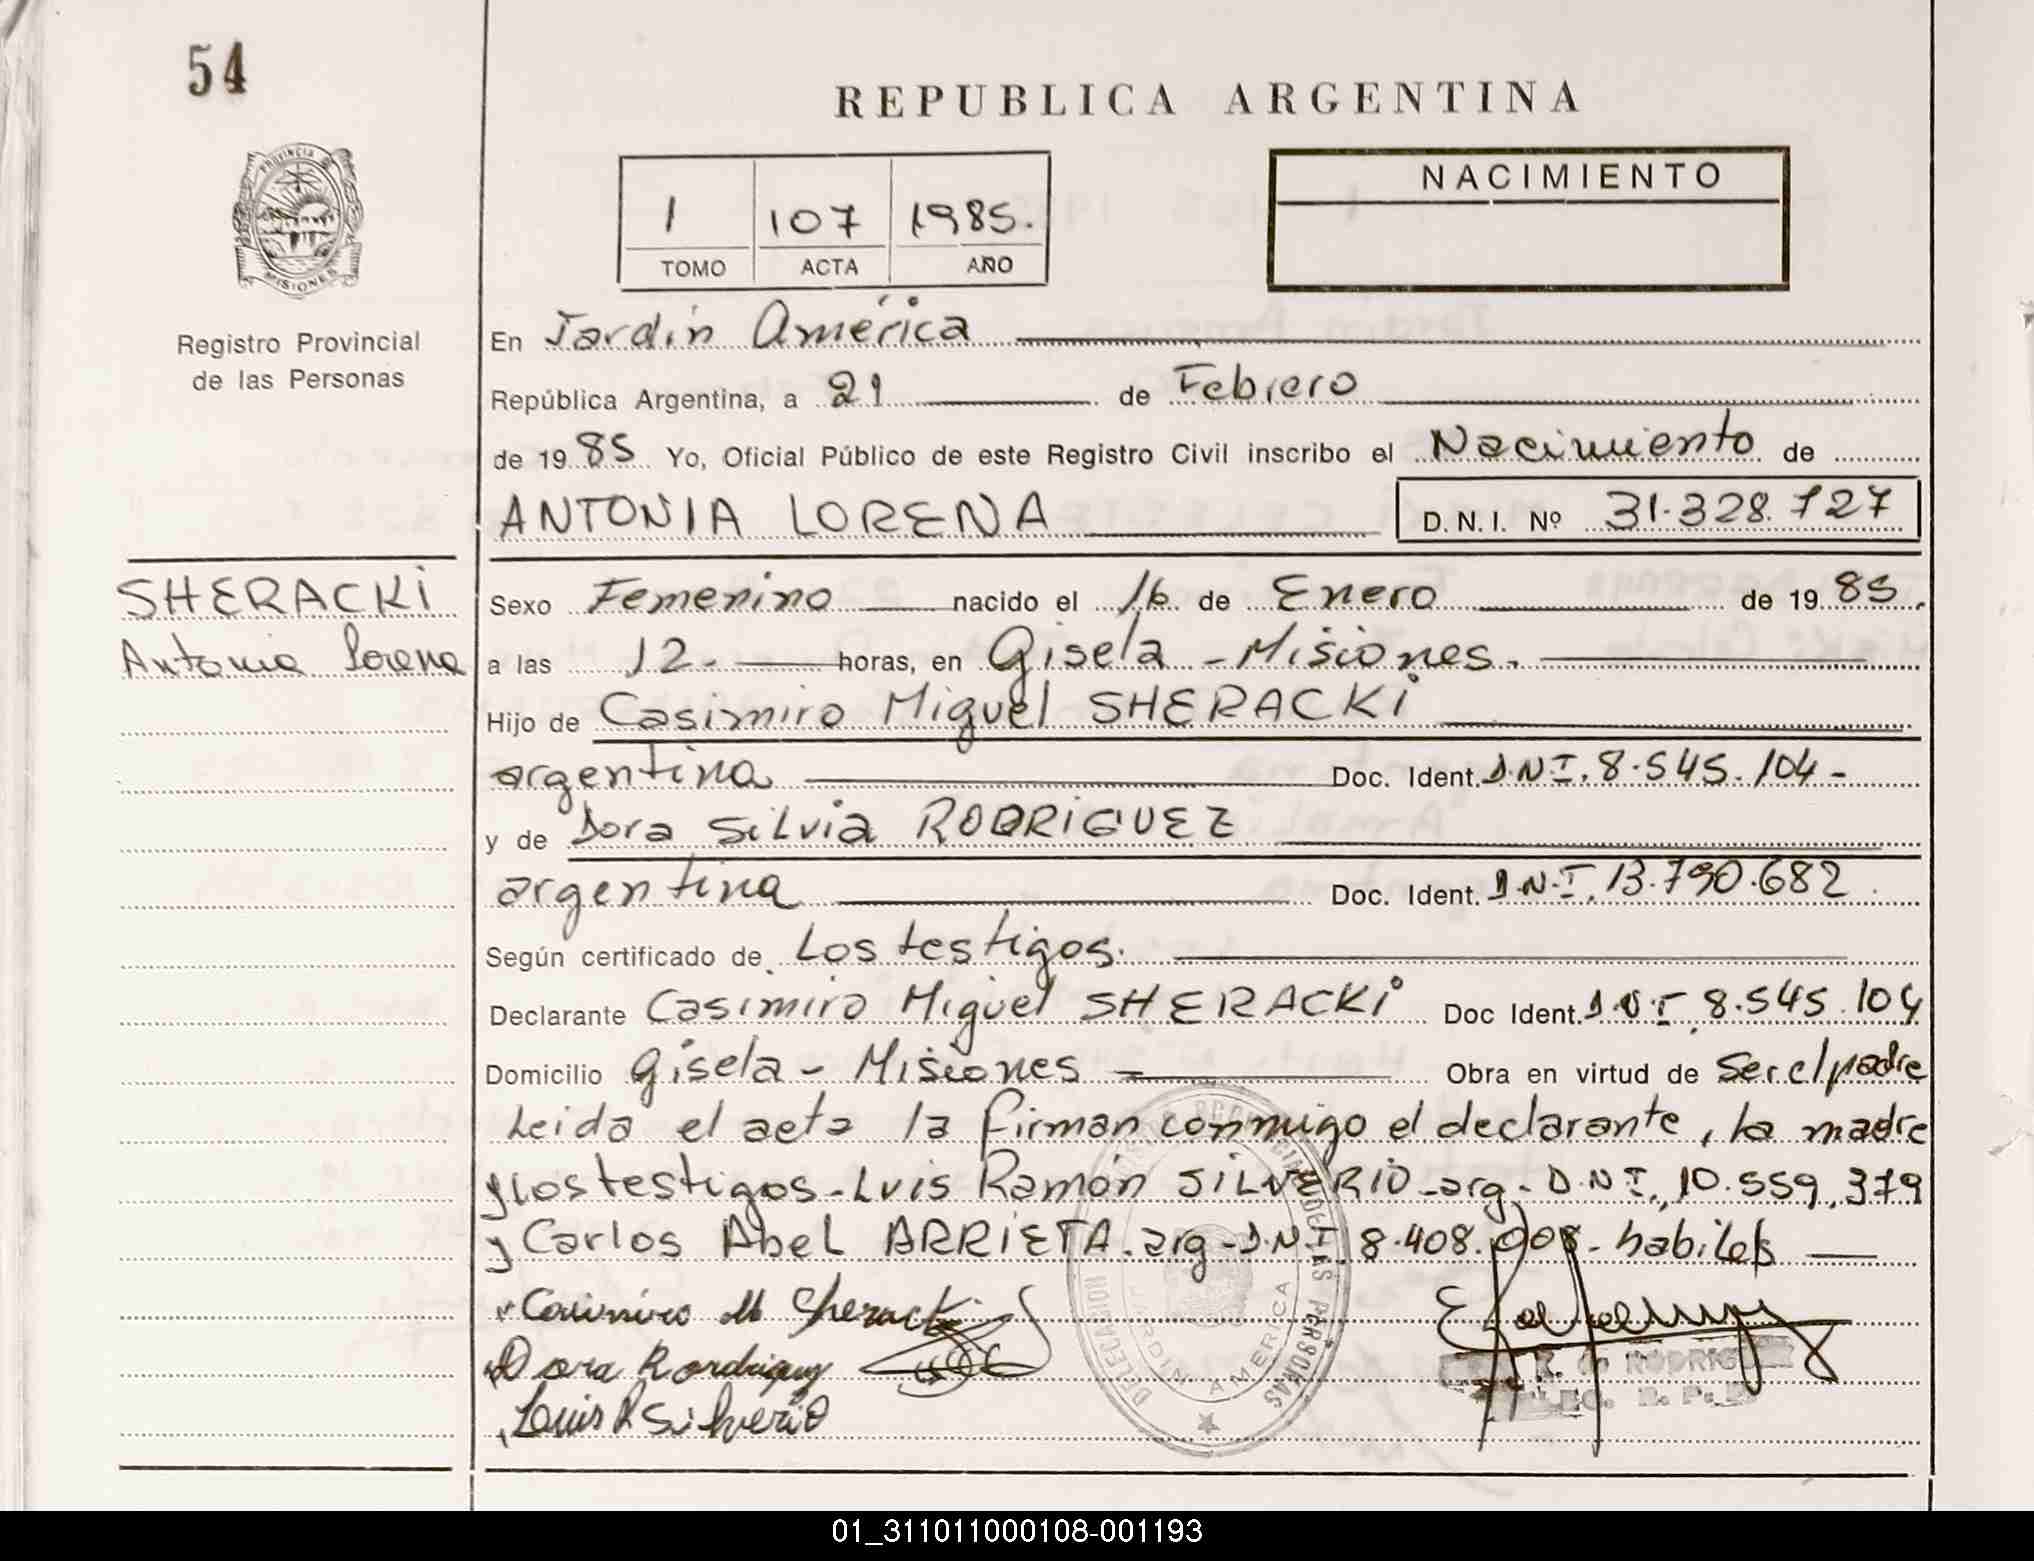 54
REPUBLICA ARGENTINA
PROVINCIA
MISIONES
Registro Provincial
de las Personas
1 107 1985.
TOMO ACTA AÑO
NACIMIENTO
En Jardín América
República Argentina, a 21 de Febrero
de 1985 Yo, Oficial Público de este Registro Civil inscribo el Nacimiento de
ANTONIA LORENA D.N.I. Nº 31.328.727
SHERACKI
Antonia Lorena
Sexo Femenino nacido el 16 de Enero de 1985.
a las 12. horas, en Gisela - Misiones.
Hijo de Casimiro Miguel SHERACKI
argentina Doc. Ident. D.N.I. 8.545.104-
y de Dora Silvia RODRIGUEZ
argentina Doc. Ident. D.N.I. 13.790.682
Según certificado de Los testigos.
Declarante Casimiro Miguel SHERACKI Doc Ident. D.N.I. 8.545.104
Domicilio Gisela - Misiones - Obra en virtud de ser el padre
Leida el acta la firman conmigo el declarante, la madre
y los testigos - Luis Ramón SILVERIO - arg - D.N.I. 10.559.379
y Carlos Abel ARRIETA. arg - D.N.I 8.408.008 - habiles
Casimiro M Sheracki
Dora Rordriguez
Luis R Silverio
DELEGACION REGISTRO PROVINCIAL DE LAS PERSONAS
JARDIN AMERICA
RODRIGUEZ
01_311011000108-001193